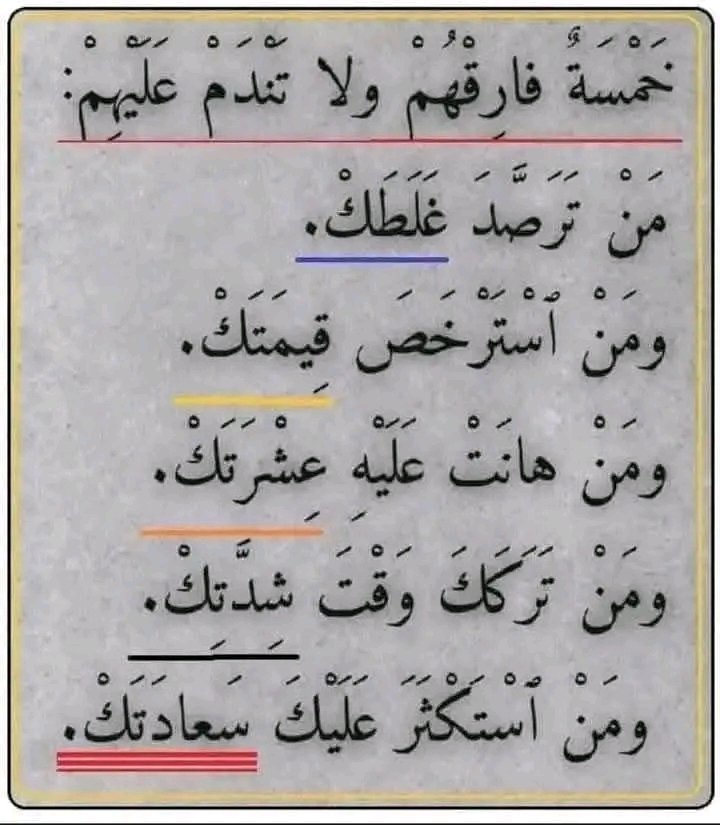 خَمْسَةٌ فارِقْهُمْ ولا تَنْدَمْ عَلَيْهِمْ:
مَنْ تَرَصَّدَ غَلَطَكْ.
ومَنْ ٱسْتَرْخَصَ قِيمَتَكْ.
ومَنْ هانَتْ عَلَيْهِ عِشْرَتَكْ.
ومَنْ تَرَكَكَ وَقْتَ شِدَّتِكْ.
ومَنْ ٱسْتَكْثَرَ عَلَيْكَ سَعادَتَكْ.